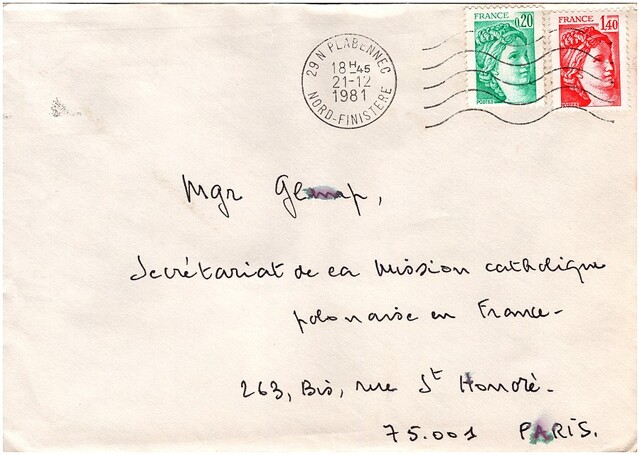 29 N PLABENNEC
18H45
21-12
1981
NORD-FINISTERE
FRANCE 0,20
POSTES
FRANCE 1,40
Mgr
Secrétariat de la Mission catholique
polonaise en France-
263, Bis, rue St Honoré-
75.001 PARIS.